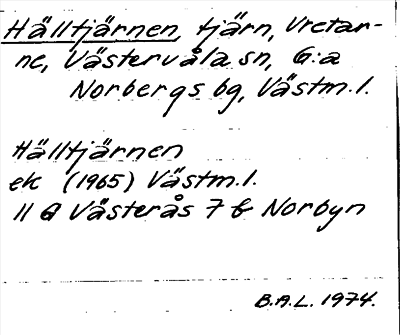 Hälltjärnen, tjärn, Vretar-
ne, Västervåla sn, G:a
Norbergs bg, Västm.l.
Hälltjärnen
ek (1965) Västm.l.
11 G Västerås 7 b Norbyn
B.A.L. 1974.